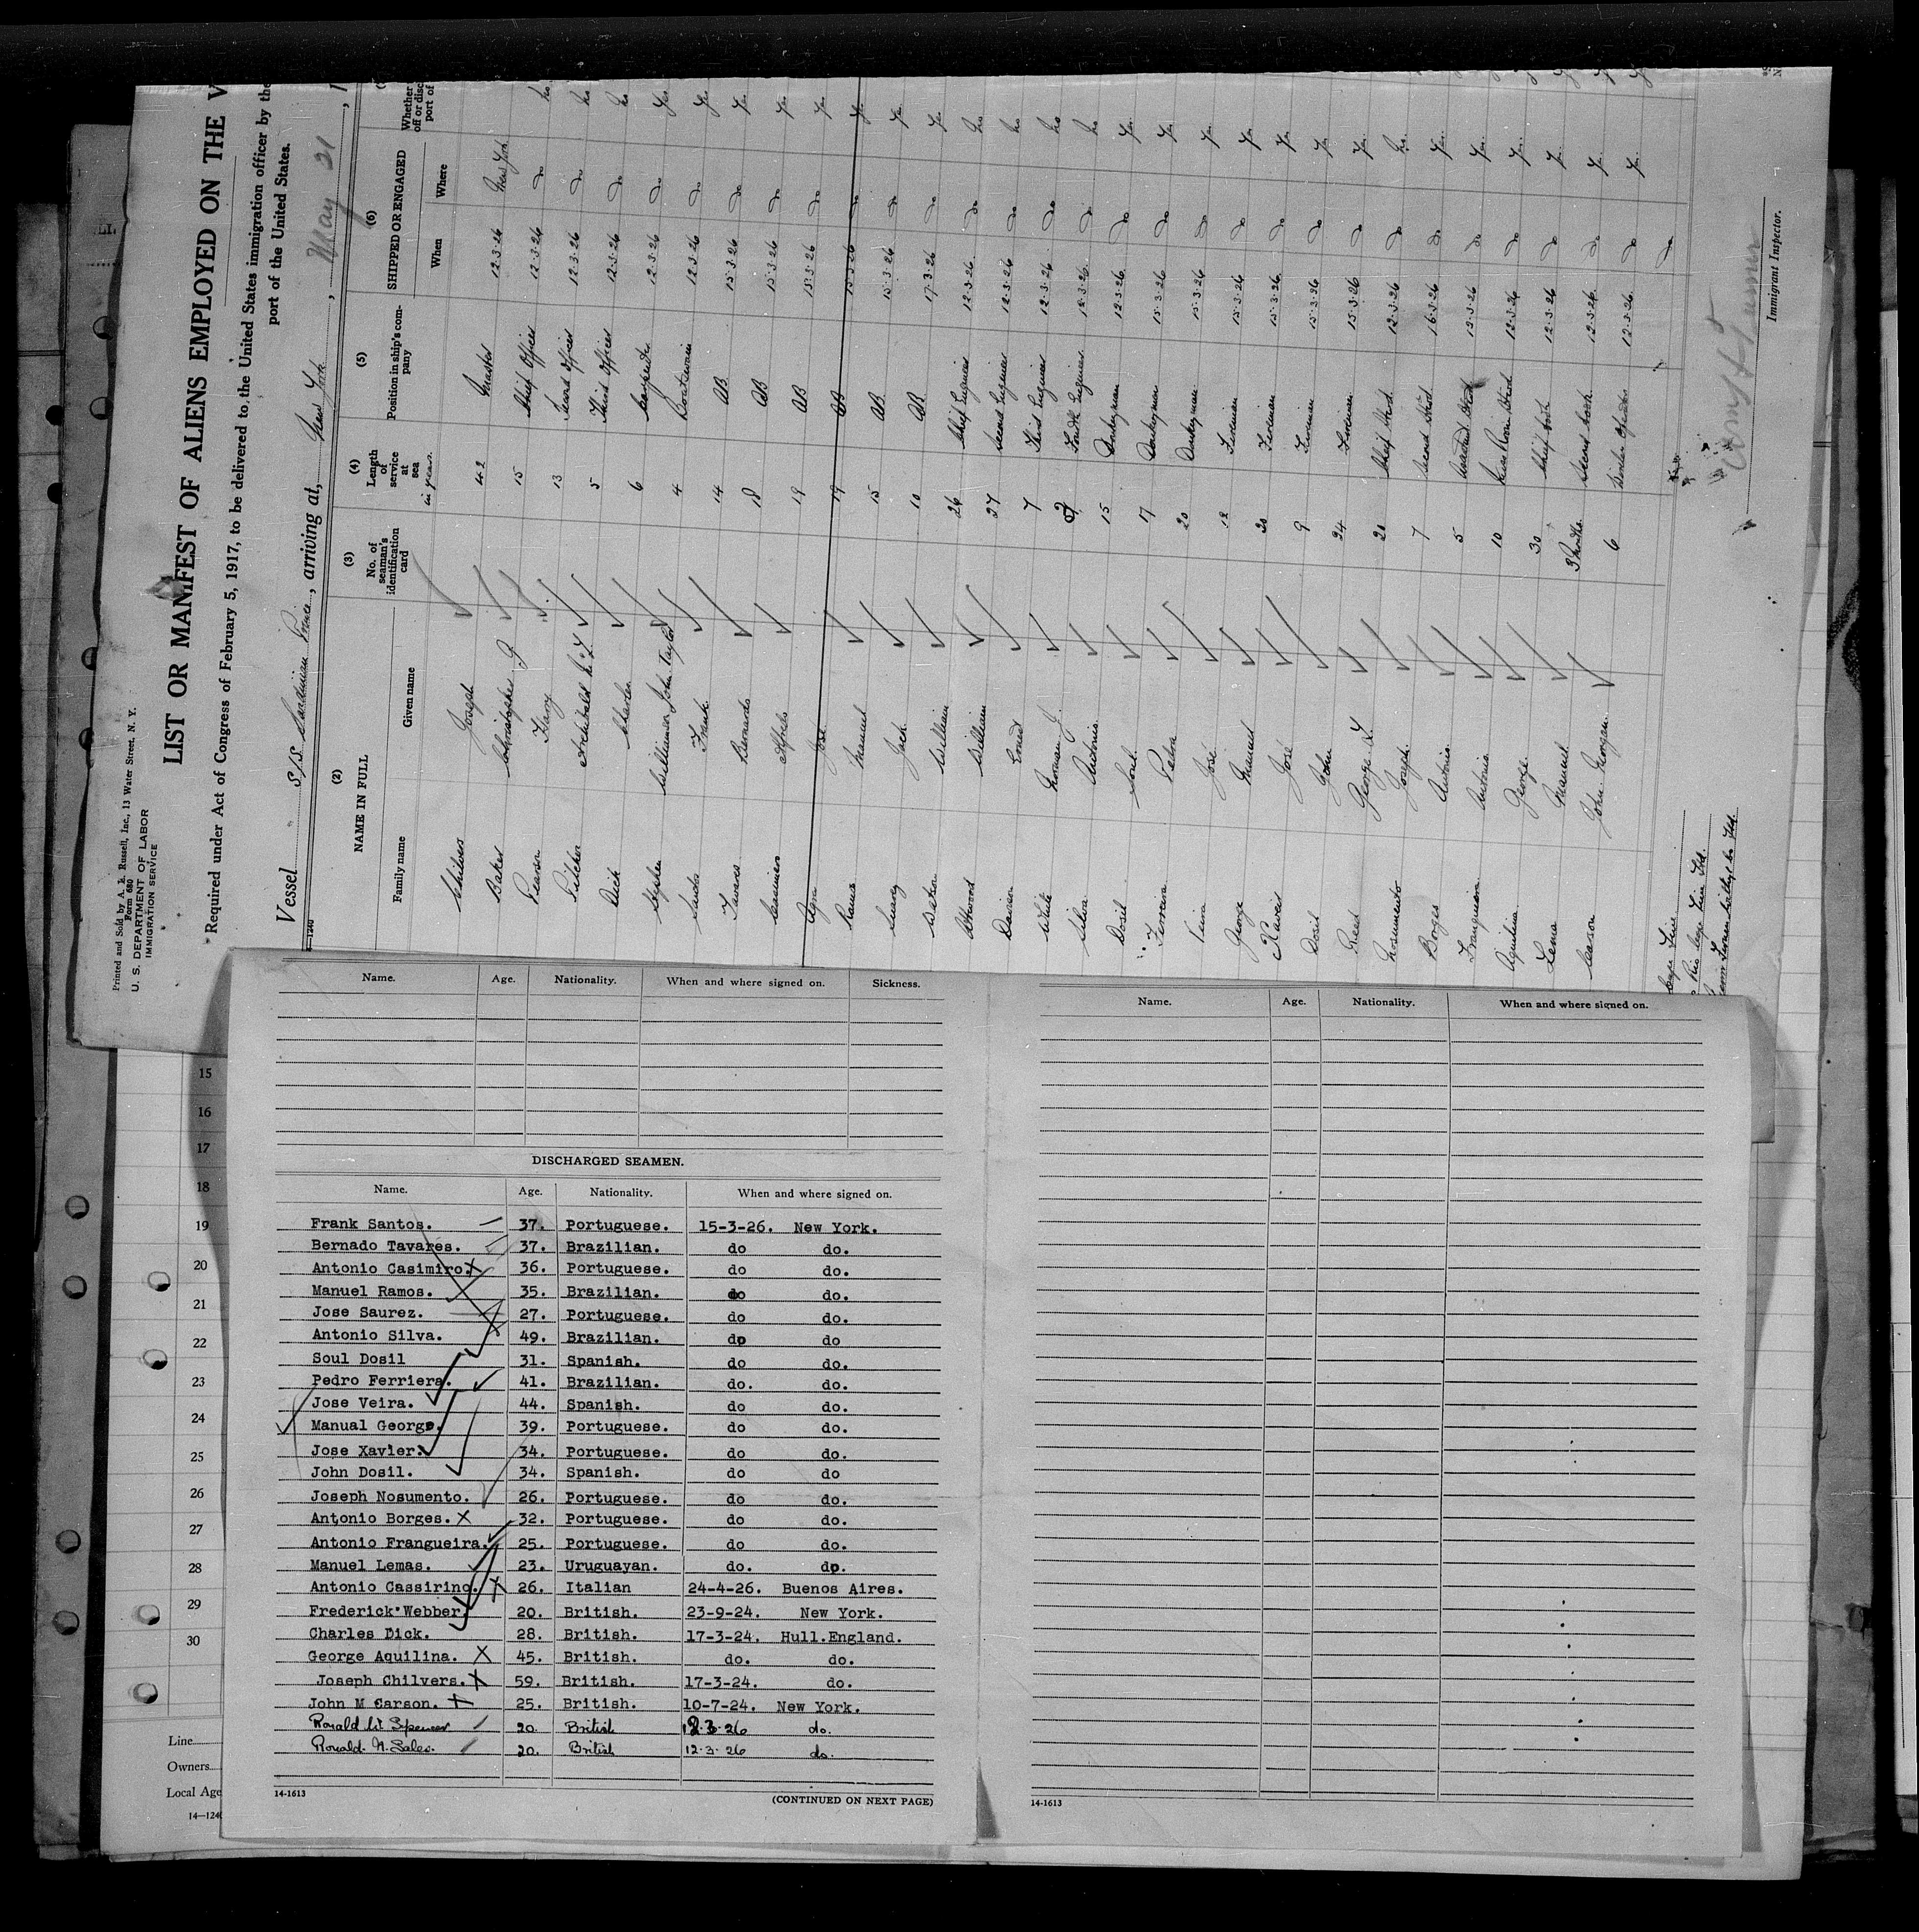 Printed and Sold by A. R. Russell, Inc., 13 Water Street, N. Y.
Form 680
U. S. DEPARTMENT OF LABOR
IMMIGRATION SERVICE
LIST OR MANIFEST OF ALIENS EMPLOYED ON THE V
Required under Act of Congress of February 5, 1917, to be delivered to the United States immigration officer by the
port of the United States.
Vessel S/S Sardinian Prince, arriving at, New York, May 21, 1
14—1240
(2) (3) (4) (5) (6)
NAME IN FULL No. of seaman's identification card Length of service at sea in years. Position in ship's company SHIPPED OR ENGAGED Whether
Family name Given name When Where off or disc port of
Chilvers Joseph 42 Master 12.3.26 New York
Baker Christopher J 15 Chief Officer 12.3.26 do No
Pearson Harry 13 Second Officer 12.3.26 do No
Pilcher Archibald 5 Third Officer 12.3.26 do No
Dick Charles 6 Carpenter 12.3.26 do Yes
Stephen William John Taylor 4 Boatswain 12.3.26 do Yes
Santos Frank 14 AB 15.3.26 do Yes
Tavares Bernardo 18 AB 15.3.26 do Yes
Casimiro 19 AB 15.3.26 do Yes
Agra José 19 AB 15.3.26 do Yes
Ramos Manuel 15 AB 15.3.26 do Yes
Suarez Jack 10 AB 17.3.26 do Yes
William 26 Chief Engineer 12.3.26 do No
Attwood William 27 Second Engineer 12.3.26 do No
Davies 7 Third Engineer 12.3.26 do No
White Norman J. Fourth Engineer 12.3.26 do No
Silva Antonio 15 Donkeyman 12.3.26 do Yes
Dosil Soul 17 Donkeyman 15.3.26 do Yes
Ferreira Pedro 20 Donkeyman 15.3.26 do Yes
Veira José 12 Fireman 15.3.26 do Yes
George Manuel 20 Fireman 15.3.26 do Yes
Xavier José 9 Fireman 15.3.26 do Yes
Dosil John 24 Fireman 15.3.26 do Yes
Reed George F 20 Chief Stwd 12.3.26 do No
Nosumento Joseph 7 Second Stwd 16.3.26 do Yes
Borges Antonio 5 Assistant Stwd 12.3.26 do Yes
Frangueira Antonio 10 12.3.26 do Yes
Aquilina George 30 Chief Cook 12.3.26 do Yes
Lema Manuel 3 Months Second Cook 12.3.26 do Yes
Carson John Morgan 6 12.3.26 do Yes
Immigrant Inspector.
Name. Age. Nationality. When and where signed on. Sickness.
DISCHARGED SEAMEN.
Name. Age. Nationality. When and where signed on.
Frank Santos. 37. Portuguese. 15-3-26. New York.
Bernado Tavares. 37. Brazilian. do do.
Antonio Casimiro. 36. Portuguese. do do.
Manuel Ramos. 35. Brazilian. do do.
Jose Saurez. 27. Portuguese. do do.
Antonio Silva. 49. Brazilian. do do
Soul Dosil 31. Spanish. do do.
Pedro Ferriera. 41. Brazilian. do. do.
Jose Veira. 44. Spanish. do do.
Manual George. 39. Portuguese. do do.
Jose Xavier. 34. Portuguese. do do.
John Dosil. 34. Spanish. do do
Joseph Nosumento. 26. Portuguese. do do.
Antonio Borges. X 32. Portuguese. do do.
Antonio Frangueira. 25. Portuguese. do do.
Manuel Lemas. 23. Uruguayan. do. do.
Antonio Cassirino. 26. Italian 24-4-26. Buenos Aires.
Frederick Webber. 20. British. 23-9-24. New York.
Charles Dick. 28. British. 17-3-24. Hull.England.
George Aquilina. X 45. British. do. do.
Joseph Chilvers. X 59. British. 17-3-24. do.
John M Carson. X 25. British. 10-7-24. New York.
Ronald W Spencer 20. British 12.3.26 do.
Ronald. N. Sales. 20. British 12.3.26 do.
14-1613
(CONTINUED ON NEXT PAGE)
Name. Age. Nationality. When and where signed on.
14-1613
15
16
17
18
19
20
21
22
23
24
25
26
27
28
29
30
Line
Owners
Local Age
14—124